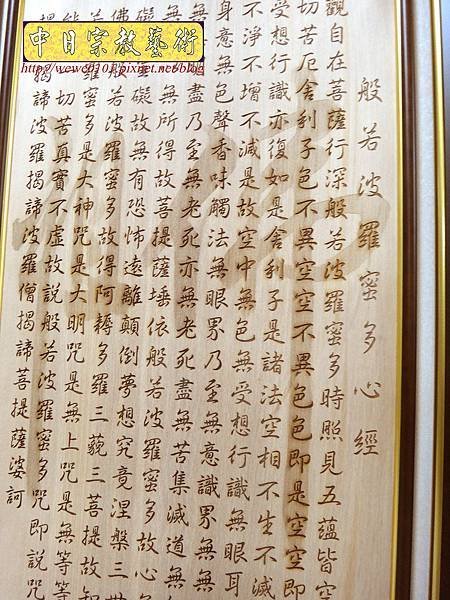 中日宗教藝術
http://wewe8101.pixnet.net/blog
般若波羅蜜多心經
觀自在菩薩行深般若波羅蜜多時照見五蘊皆空
切苦厄舍利子色不異空空不異色色即是空空即
受想行識亦復如是舍利子是諸法空相不生不滅
不淨不增不減是故空中無色無受想行識無眼耳
身意無色聲香味觸法無眼界乃至無意識界無無
盡乃至無老死亦無老死盡無苦集滅道無
無所得故菩提薩埵依般若波羅蜜多故心
礙故無有恐怖遠離顛倒夢想究竟涅槃三世
若波羅蜜多故得阿耨多羅三藐三菩提故知
蜜多是大神咒是大明咒是無上咒是無等等
切苦真實不虛故說般若波羅蜜多咒即說咒
揭諦波羅揭諦波羅僧揭諦菩提薩婆訶